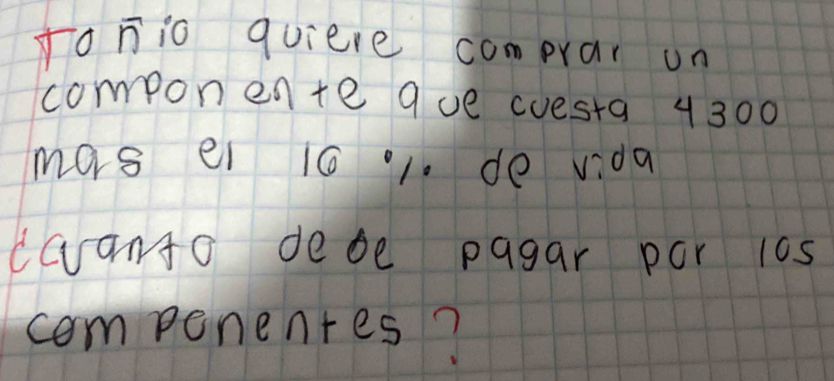 Toñio quiere comprar un
componente que cuesta 4300
mas el 16 % de vida
¿Cuanto debe pagar por los
componentes?